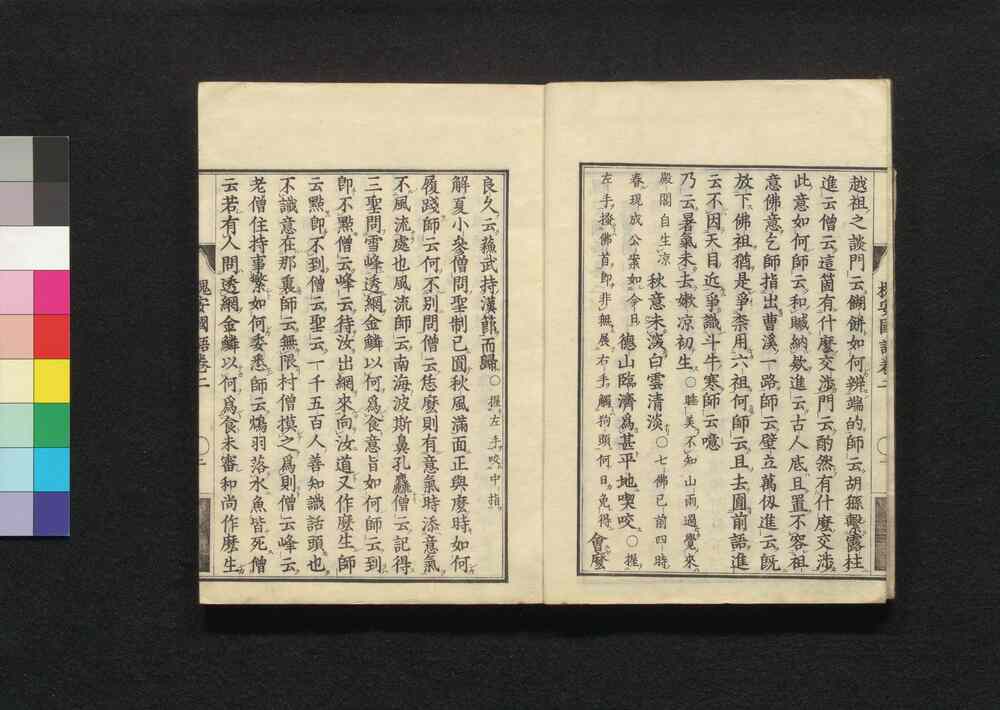 越祖之談門云餬餅如何辨端的師云胡猻繫露柱
進云僧云這箇有什麼交涉門云酌然有什麼交涉
此意如何師云和贓納欵進云古人底且置不容祖
意佛意乞師指出曹溪一路師云壁立萬仭進云既
放下佛祖猶是爭柰用六祖何師云且去圓前語進
云不因天目近爭識斗牛寒師云噫
乃云暑氣未去嫩凉初生○睡美不知山雨過覺來
殿閣自生凉 秋意未淡白雲清淡○七佛已前四時
春現成公案如今且 德山臨濟爲甚平地喫咬○握
左手撥佛首即非無展右手觸狗頭何日免得 會麼
良久云蘓武持漢節而歸○握左手咬中指
解夏小叅僧問聖制已圓秋風滿面正與麼時如何
履踐師云何不別問僧云恁麼則有意氣時添意氣
不風流處也風流師云南海波斯鼻孔麤僧云記得
三聖問雪峰透網金鱗以何爲食意旨如何師云到
即不點僧云峰云待汝出網來向汝道又作麼生師
云點即不到僧云聖云一千五百人善知識話頭也
不識意在那裏師云無限村僧摸之爲則僧云峰云
老僧住持事繁如何委悉師云鴆羽落水魚皆死僧
云若有人問透網金鱗以何爲食未審和尚作麼生
槐安國語卷二